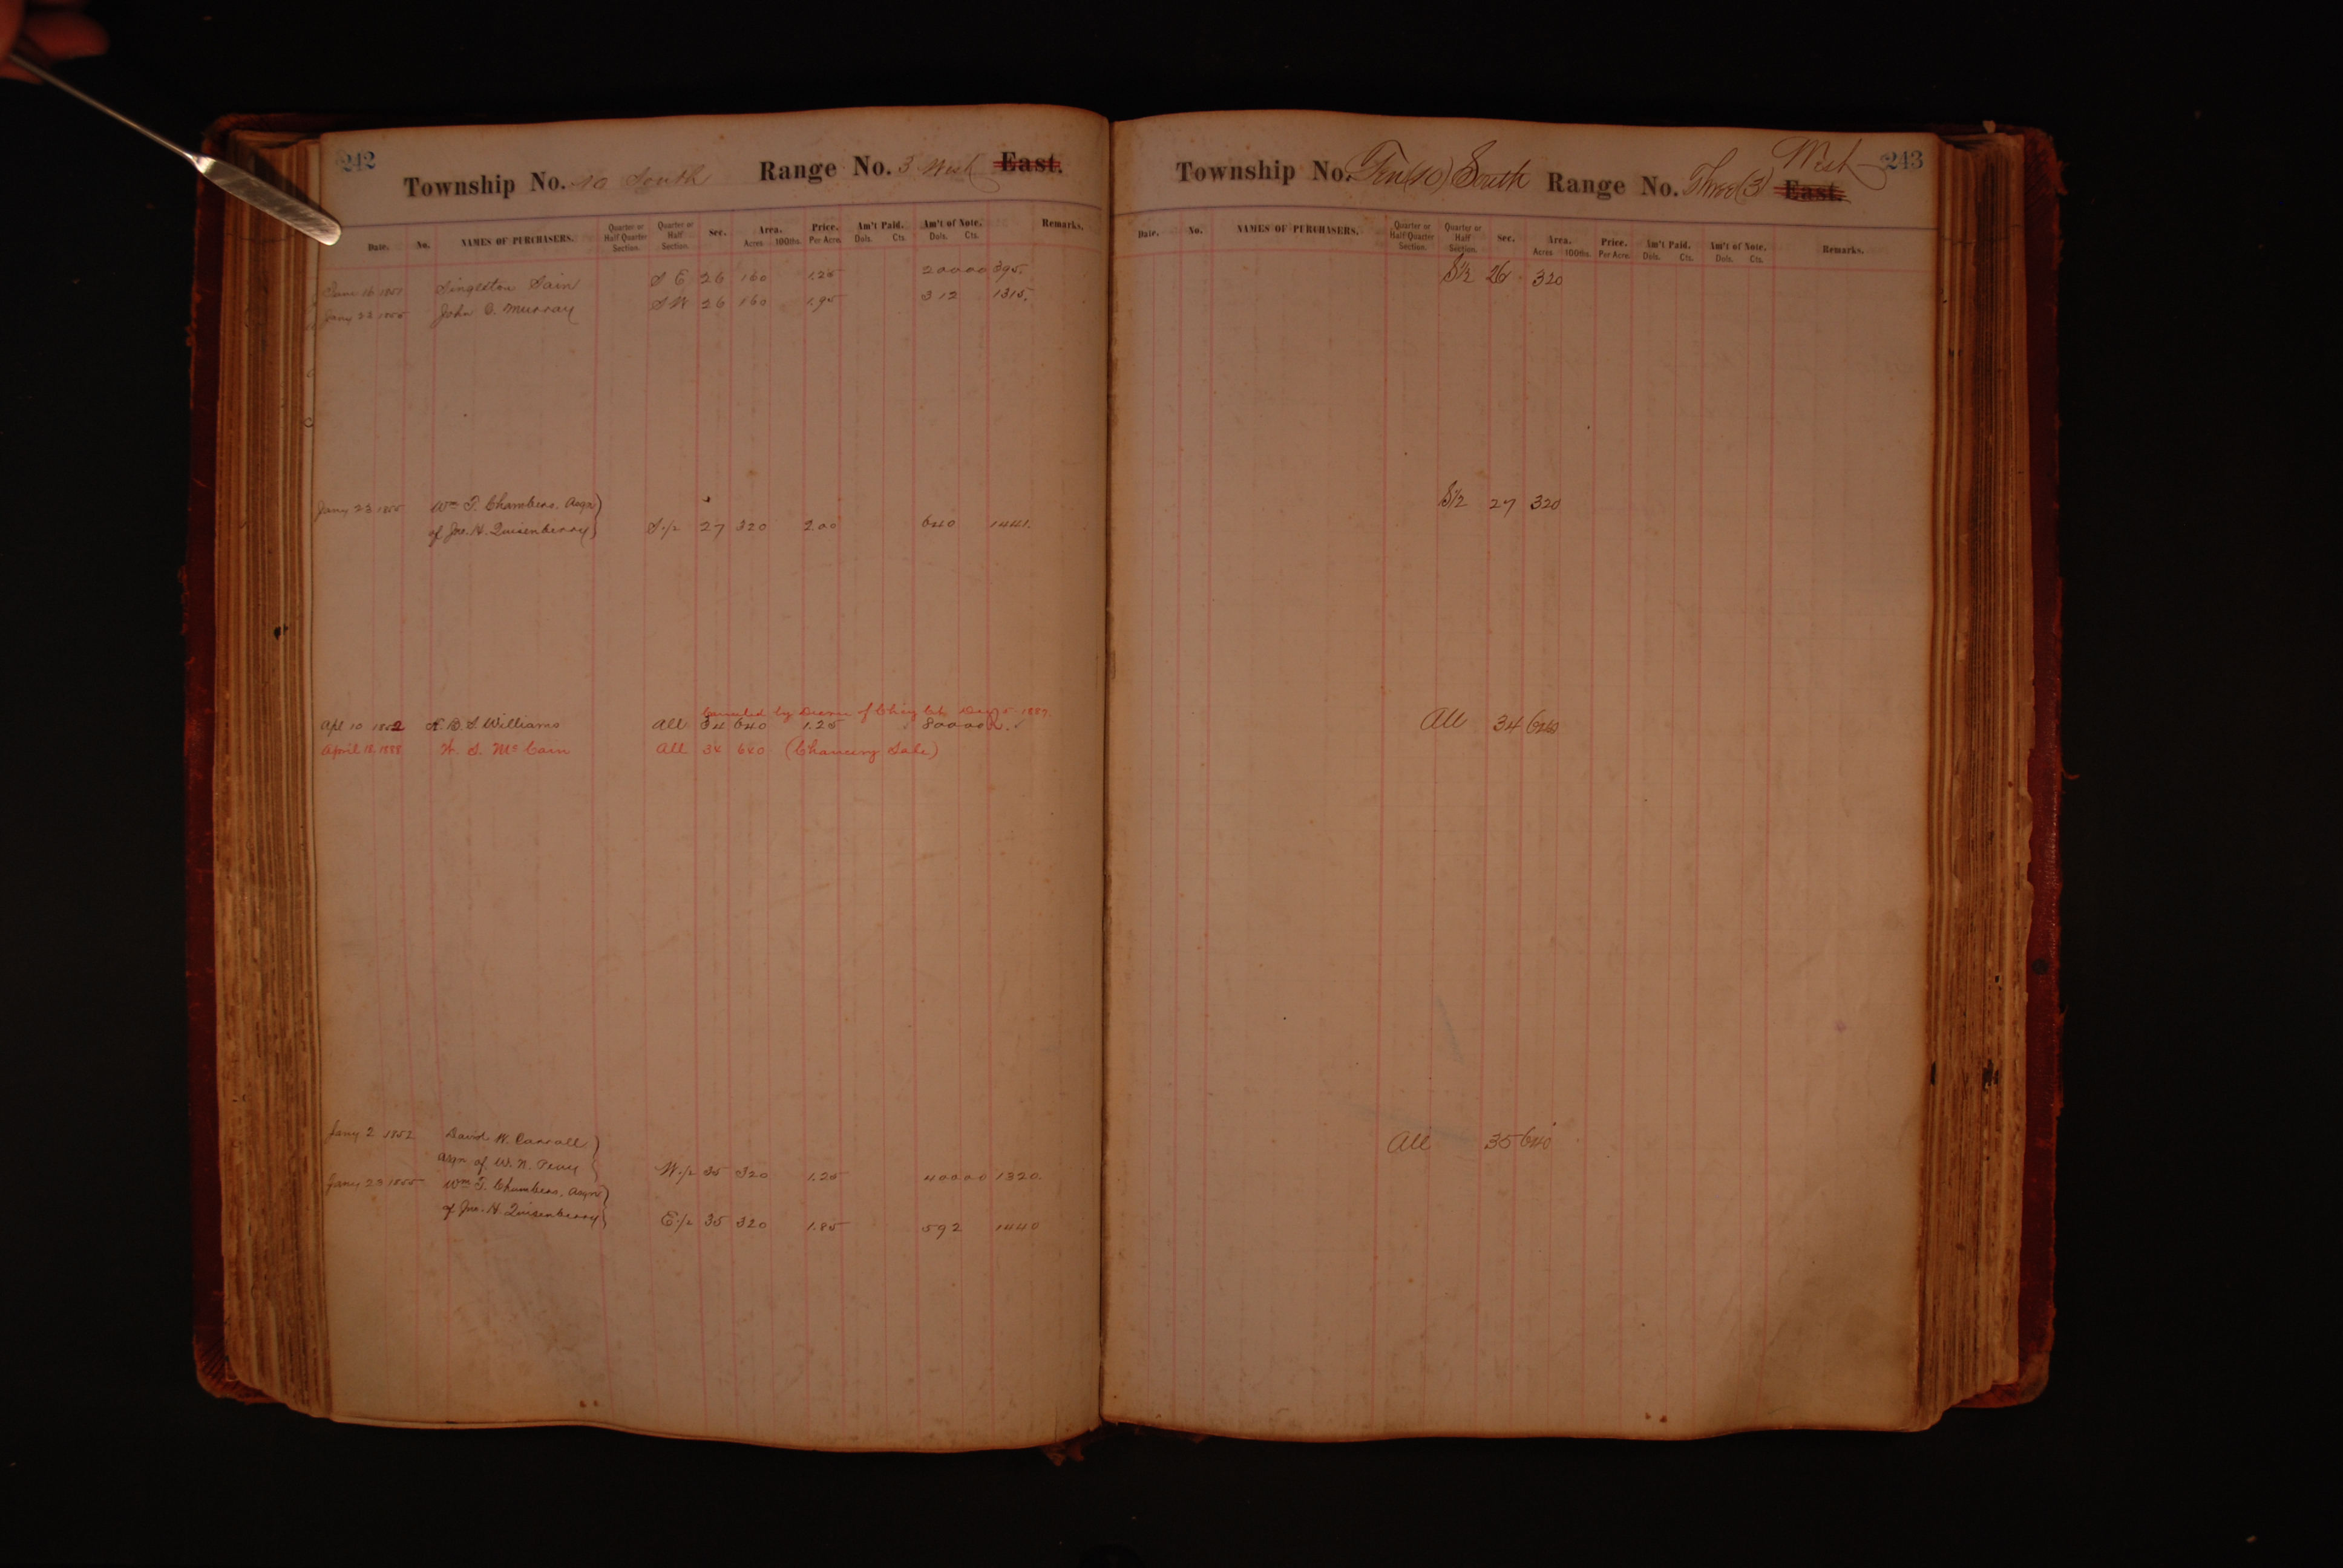 242
Township No. 10 South Range No. 3 West East.
Date. No. NAMES OF PURCHASERS. Quarter or Half Quarter Section. Quarter or Half Section. Sec. Area. Acres 100ths. Price. Per Acre. Am't Paid. Dols. Cts. Am't of Note. Dols. Cts. Remarks.
June 16 1851 Singleton Sain S E 26 160 1.25 200 00 395.
Jany 23 1855 John O. Murray S W 26 160 1.95 312 1315.
Jany 23 1855 Wm T. Chambers, Asgn
of Jno. H. Quisenberry S 1/2 27 320 200 640 1441.
Canceled by Decree of Chy 1887.
Apl 10 1852 R. B. S. Williams All 34 640 1.25 800 00
April 18, 1888 W. S. McCain All 34 640 (Chancery Sale)
Jany 2 1852 David W. Carroll
Asgn of W. N. Peay W 1/2 35 320 1.25 400 00 1320.
Jany 23 1855 Wm T. Chambers, Asgn
of Jno. H. Quisenberry E 1/2 35 320 1.85 592 1440
243
Township No. Ten (10) South Range No. Three (3) West East.
Date. No. NAMES OF PURCHASERS. Quarter or Half Quarter Section. Quarter or Half Section. Sec. Area. Acres 100ths. Price. Per Acre. Am't Paid. Dols. Cts. Am't of Note. Dols. Cts. Remarks.
S 1/2 26 320
S 1/2 27 320
All 34 640
All 35 640